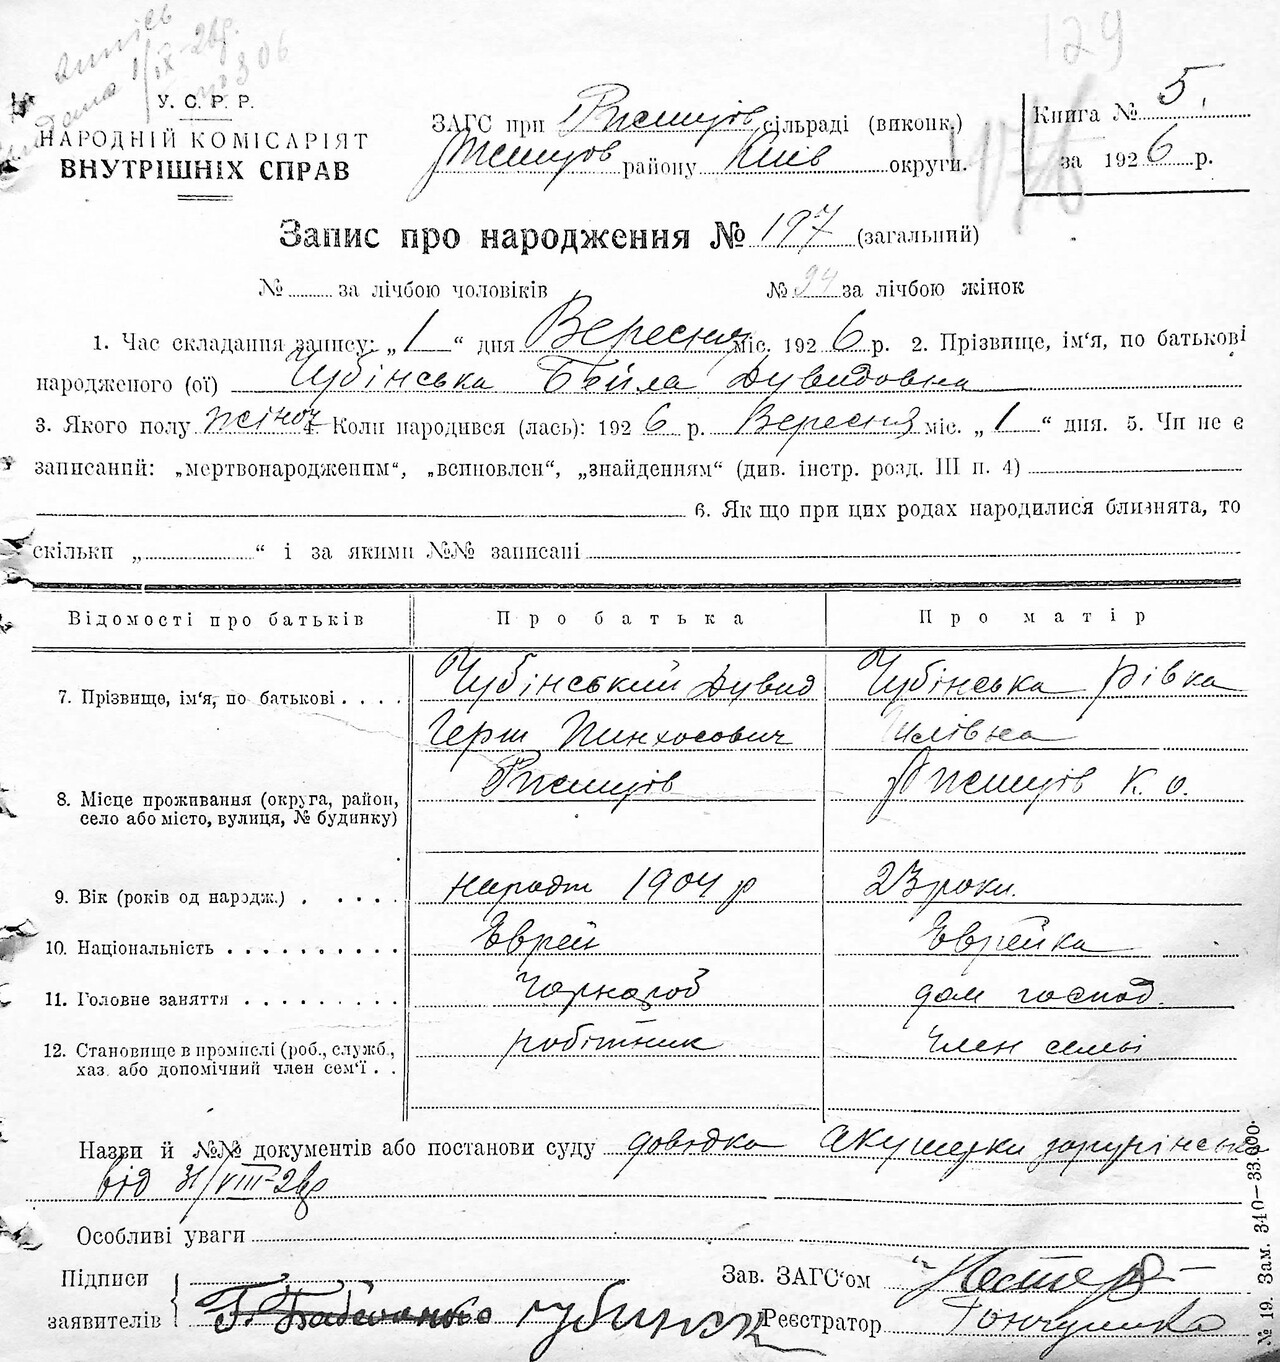 129
У. С. Р. Р.
НАРОДНІЙ КОМІСАРІЯТ
ВНУТРІШНІХ СПРАВ
ЗАГС при Ржищів сільраді (виконк.)
Ржищов району Київ округи.
Книга № 5.
за 1926 р.
Запис про народження № 197 (загальний)
№ за лічбою чоловіків № 94 за лічбою жінок
1. Час складання запису: „1“ дня Вересня міс. 1926 р. 2. Прізвище, ім‘я, по батькові
народженого (ої) Чубінська Бейла Дувидовна
3. Якого полу жіноч 4. Коли народився (лась): 1926 р. Вересня міс. „1“ дня. 5. Чи не є
записаний: „мертвонародженим“, „всиновлен“, „знайденням“ (див. інстр. розд. III п. 4)
6. Як що при цих родах народилися близнята, то
скільки „ “ і за якими №№ записані
Відомості про батьків Про батька Про матір
7. Прізвище, ім‘я, по батькові Чубінський Дувид Чубінська Рівка
Герш Пинхосович Шлівна
8. Місце проживання (округа, район, Ржищів Ржищів К. о.
село або місто, вулиця, № будинку)
9. Вік (років од народж.) народж 1904 р 23 роки.
10. Національність Еврей Еврейка
11. Головне заняття Чорнороб дом господ.
12. Становище в промислі (роб., служб., робітник Член семьі
хаз. або допомічний член сем‘ї
Назви й №№ документів або постанови суду довідка Акушерки
від 31/VIII-26р
Особливі уваги
Підписи
заявителів
Зав. ЗАГС‘ом
Реєстратор Гончаренко
№ 19. Зам. 340—33.000.